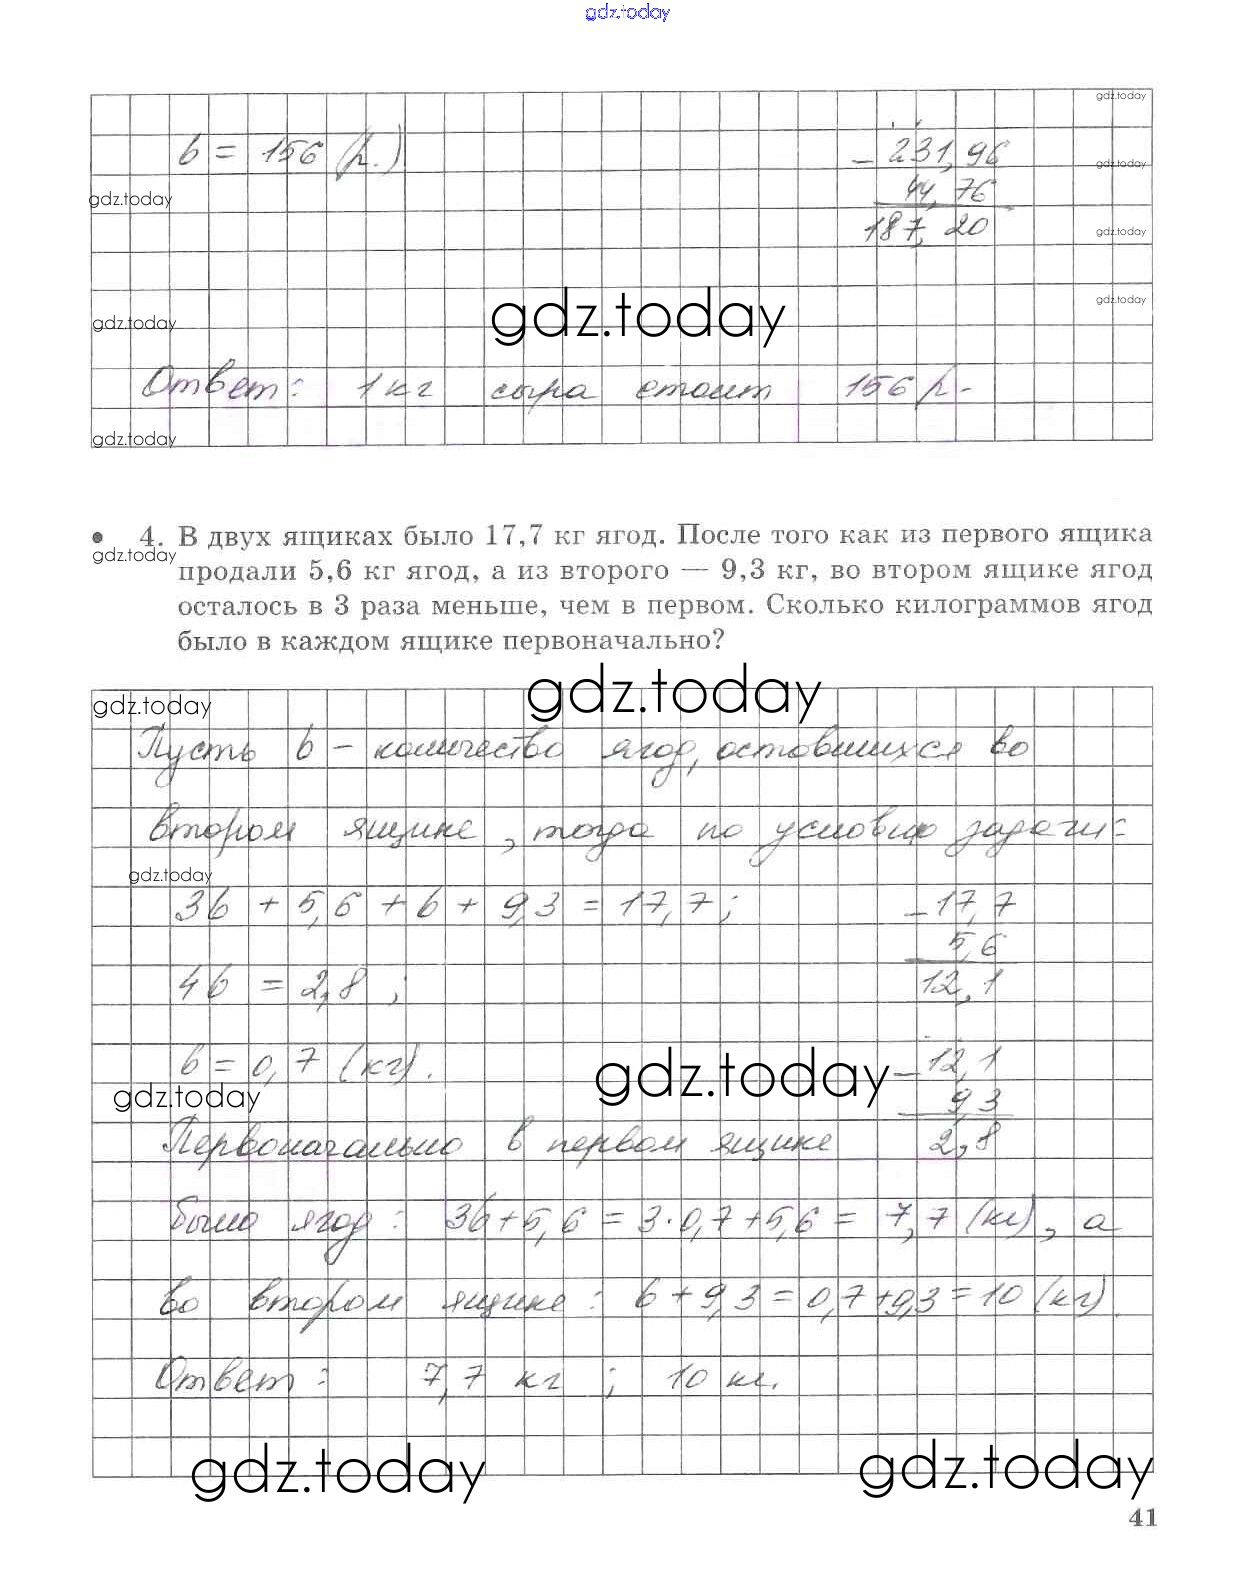 gdz.today
gdz.today
b = 156 (р.)
231,96
gdz.today
gdz.today
44,76
187,20
gdz.today
gdz.today
gdz.today
gdz.today
Ответ: 1 кг сыра стоит 156 р.
gdz.today
• 4. В двух ящиках было 17,7 кг ягод. После того как из первого ящика
gdz.today
продали 5,6 кг ягод, а из второго — 9,3 кг, во втором ящике ягод
осталось в 3 раза меньше, чем в первом. Сколько килограммов ягод
было в каждом ящике первоначально?
gdz.today
gdz.today
Пусть b – количество ягод, оставшихся во
втором ящике, тогда по условию задачи:
gdz.today
3b + 5,6 + b + 9,3 = 17,7;
– 17,7
5,6
12,1
4b = 2,8;
b = 0,7 (кг).
– 12,1
9,3
2,8
gdz.today
gdz.today
Первоначально в первом ящике
было ягод: 3b + 5,6 = 3·0,7 + 5,6 = 7,7 (кг), а
во втором ящике: b + 9,3 = 0,7 + 9,3 = 10 (кг).
Ответ: 7,7 кг ; 10 кг.
gdz.today
gdz.today
41